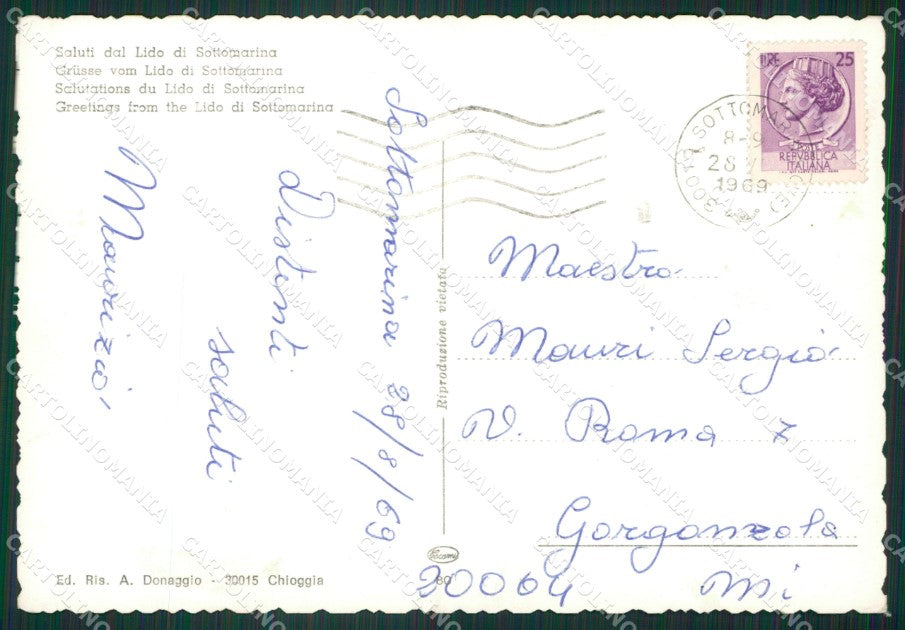 Saluti dal Lido di Sottomarina
Grüsse vom Lido di Sottomarina
Salutations du Lido di Sottomarina
Greetings from the Lido di Sottomarina
Sottomarina 28/8/69
Distinti
saluti
Maurizio
Riproduzione vietata
LIRE 25
REPVBBLICA
ITALIANA
SOTTOMAR
8-9
28
1969
Maestro
Mauri Sergio
V. Roma 7
Gorgonzola
20064 Mi
Ed. Ris. A. Donaggio - 30015 Chioggia
CARTOLINOMANIA